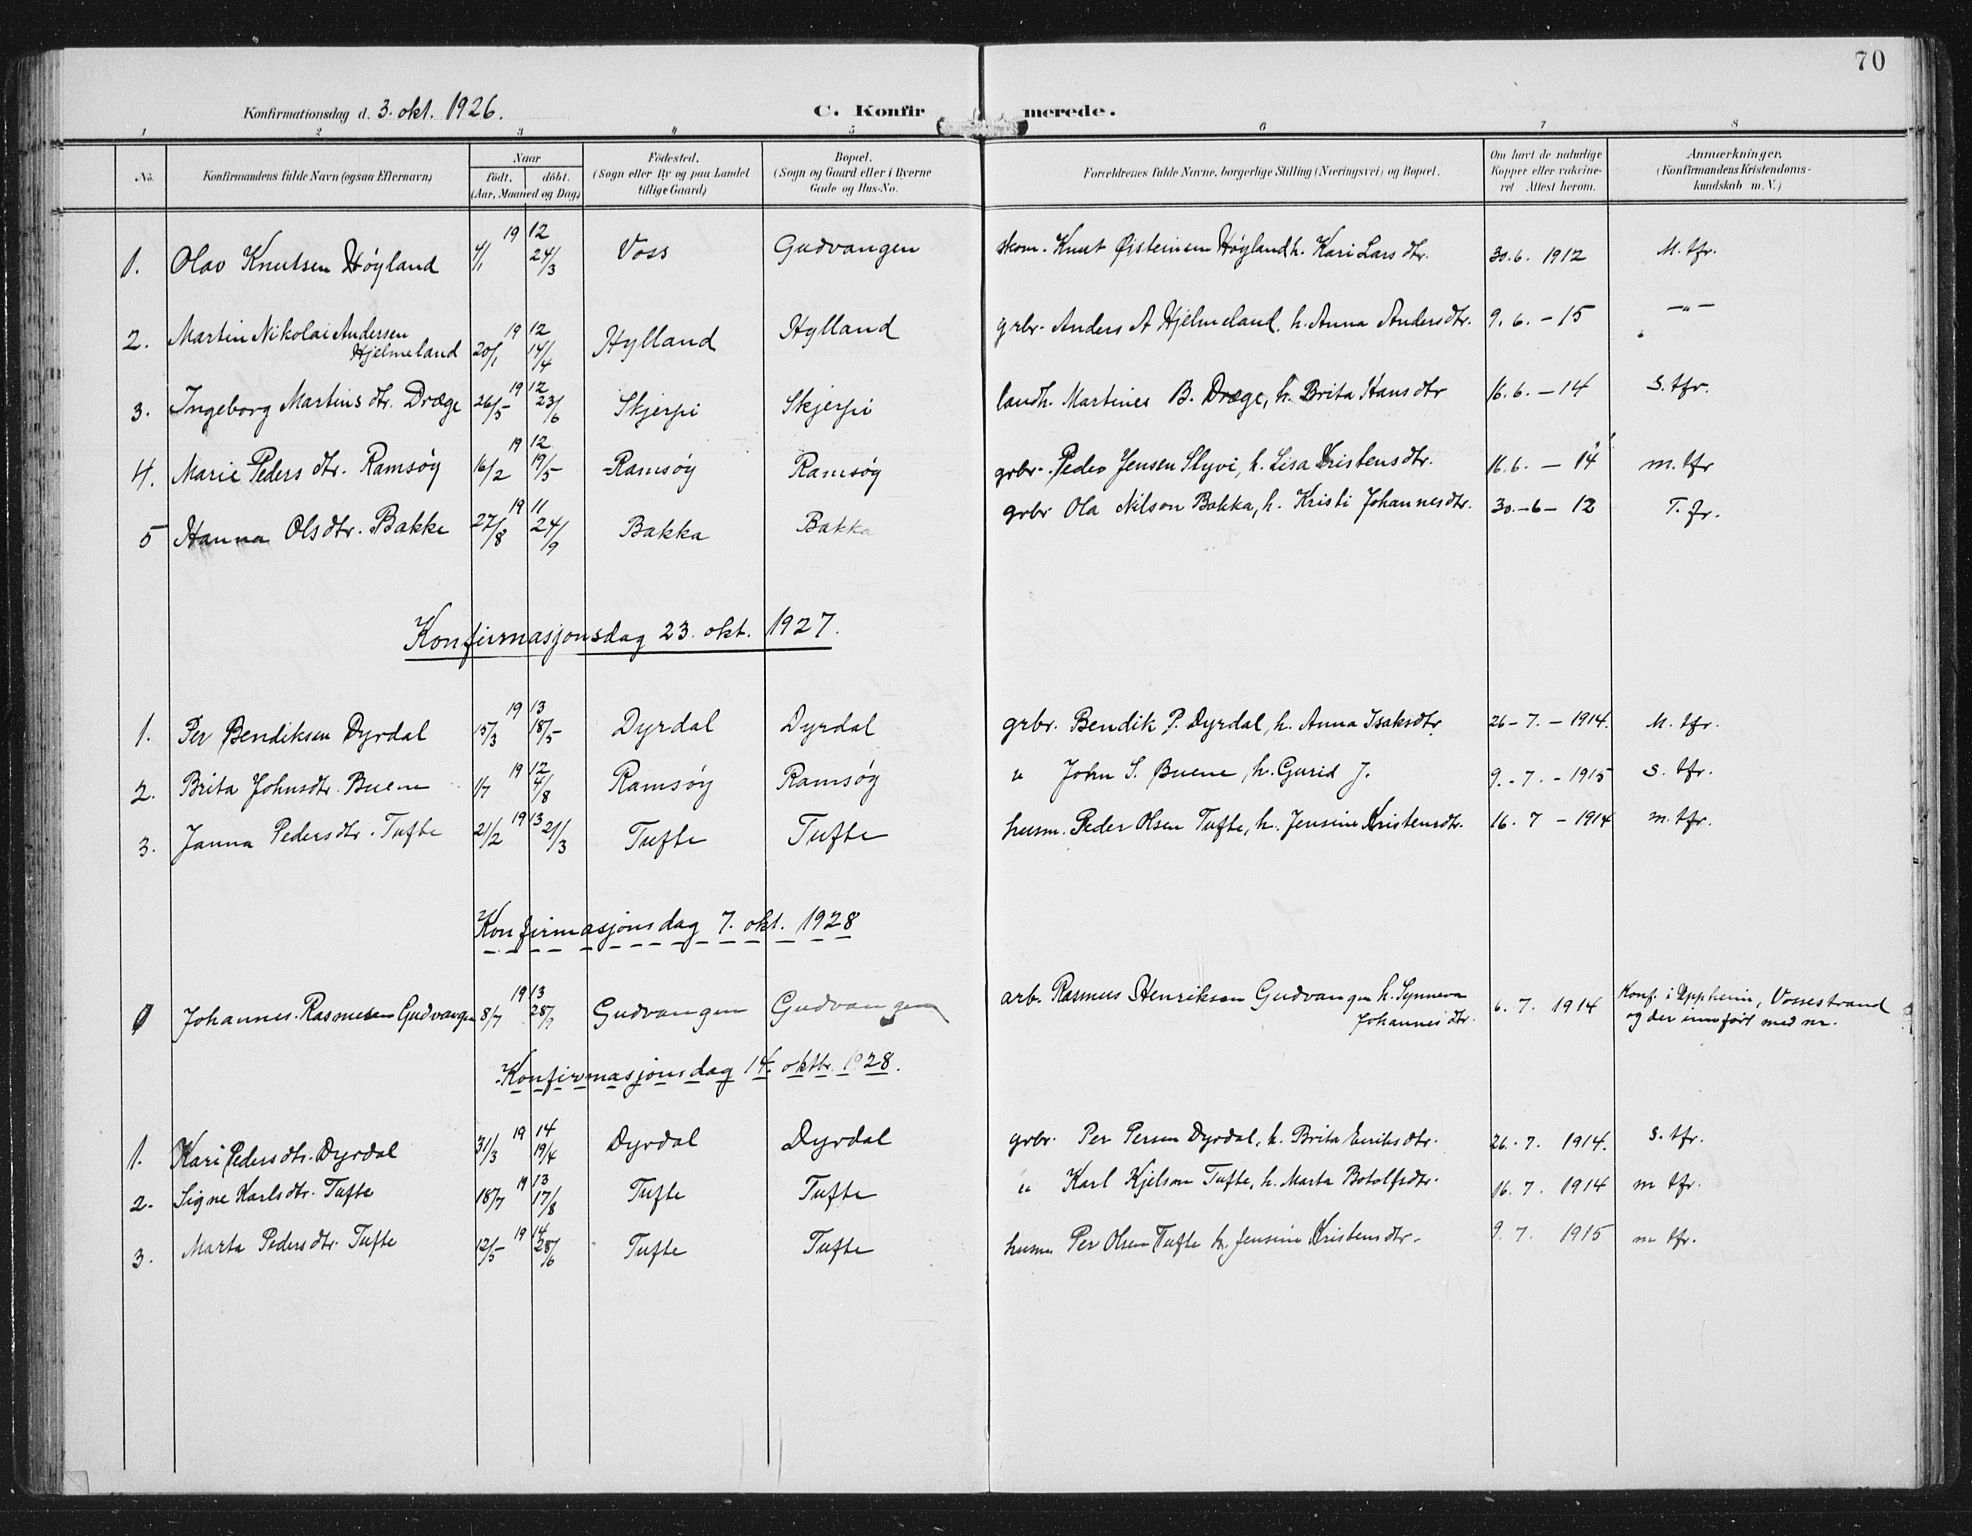 70
Konfirmationsdag d. 3. okt. 1926.
C. Konfirmerede.
1 2 3 4 5 6 7 8
No. Konfirmandens fulde Navn (ogsaa Efternavn) Naar født. døbt. (Aar, Maaned og Dag) Fødested. (Sogn eller By og paa Landet tillige Gaard) Bopæl. (Sogn og Gaard eller i Byerne Gade og Hus-No. Forældrenes fulde Navne, borgerlige Stilling (Næringsvei) og Bopæl. Om havt de naturlige Kopper eller vakcineret Attest herom. Anmærkninger. (Konfirmandens Kristendomskundskab m. V.)
1. Olav Knutsen Høyland 19 12 4/1 24/3 Voss Gudvangen skom. Knut Øisteinsen Høyland h. Kari Larsdtr. 30.6. 1912 M. tfr.
2. Martin Nikolai Andersen Hjelmeland 19 12 20/1 14/4 Hylland Hylland grbr. Anders A Hjelmeland. h. Anna Andersdtr. 9. 6. - 15 -"-
3. Ingeborg Martinsdtr. Dræge 19 12 26/5 23/6 Skjerpi Skjerpi landh. Martines B. Dræge, h. Brita Hansdtr 16.6. - 14 S. tfr.
4. Marie Pedersdtr. Ramsøy 19 12 16/2 19/5 Ramsøy Ramsøy grbr. Peder Jensen Styvi, h. Lisa Kristensdtr. 16.6. - 14 m. tfr
5 Hanna Olsdtr. Bakke 19 11 27/8 24/9 Bakka Bakka grbr Ola Nilson Bakka, h. Kristi Johannesdtr. 30.-6- 12 T. fr.
Konfirmasjonsdag 23. okt. 1927.
1. Per Bendiksen Dyrdal 19 13 15/3 18/5 Dyrdal Dyrdal grbr. Bendik P. Dyrdal, h. Anna Isaksdtr 26-7.-1914. M. tfr.
2. Brita Johnsdtr. Buene 19 12 1/7 4/8 Ramsøy Ramsøy " John S. Buene, h. Gurid J. 9.-7.-1915 S. tfr.
3. Janna Pedersdtr. Tufte 19 13 21/2 21/3 Tufte Tufte husm. Peder Olsen Tufte, h. Jensine Kristensdtr. 16. 7 - 1914 m. tfr.
Konfirmasjonsdag 7. okt. 1928
Johannes Rasmussen Gudvangen 19 13 8/7 Gudvangen Gudvangen arb. Rasmus Henriksen Gudvangen h. Synneva Johannesdtr. 6. 7. 1914 Konf. i Oppheim, Vossestrand og der innført med nr.
Konfirmasjonsdag 14. oktbr. 1928.
1. Kari Pedersdtr. Dyrdal 19 14 31/3 19/4 Dyrdal Dyrdal grbr. Per Persen Dyrdal, h. Brita Eriksdtr. 26. 7. 1914. S. tfr.
2. Signe Karlsdtr. Tufte 19 13 18/7 17/8 Tufte Tufte " Karl Kjelson Tufte, h. Marta Botolfsdtr. 16. 7. 1914 m tfr.
3. Marta Pedersdtr. Tufte 19 14 12/5 28/6 Tufte Tufte husm Per Olsen Tufte h. Jensine Kristensdtr. 9. 7. 1915 m tfr.